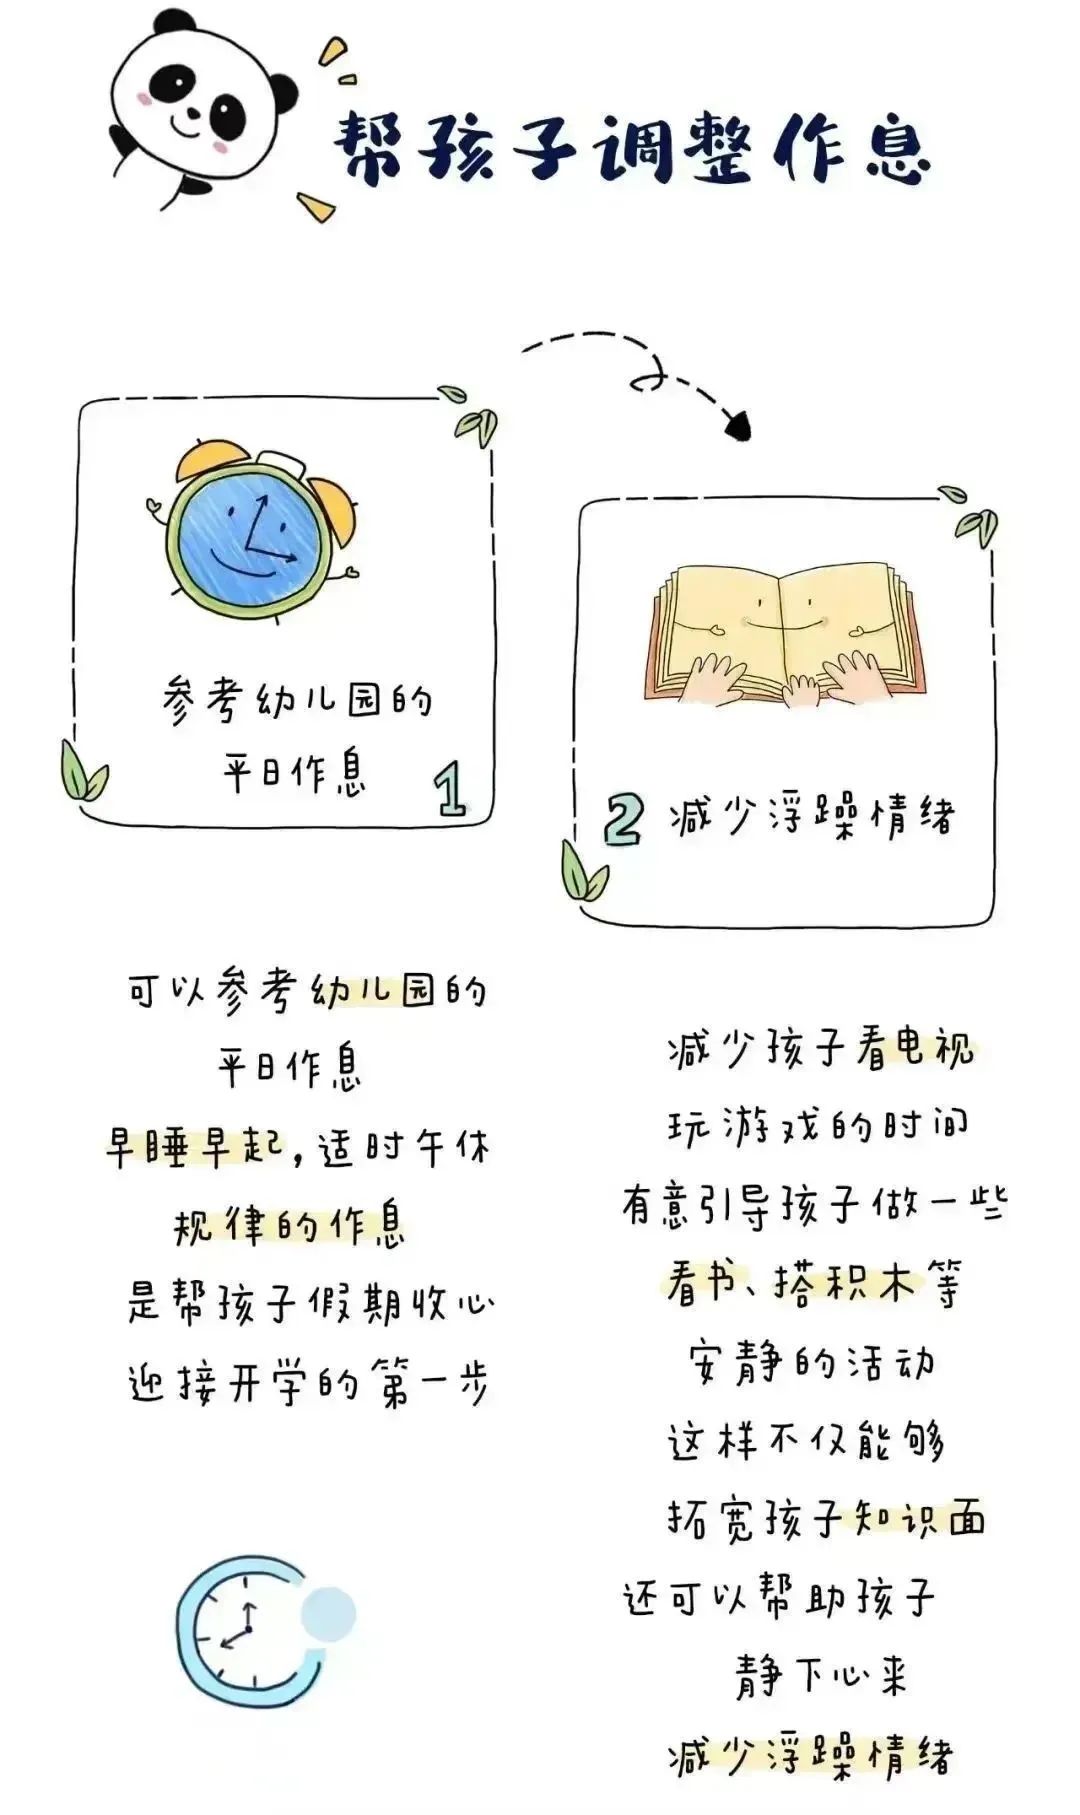 帮孩子调整作息
参考幼儿园的
平日作息
1
2 减少浮躁情绪
可以参考幼儿园的
平日作息
早睡早起,适时午休
规律的作息
是帮孩子假期收心
迎接开学的第一步
减少孩子看电视
玩游戏的时间
有意引导孩子做一些
看书、搭积木等
安静的活动
这样不仅能够
拓宽孩子知识面
还可以帮助孩子
静下心来
减少浮躁情绪